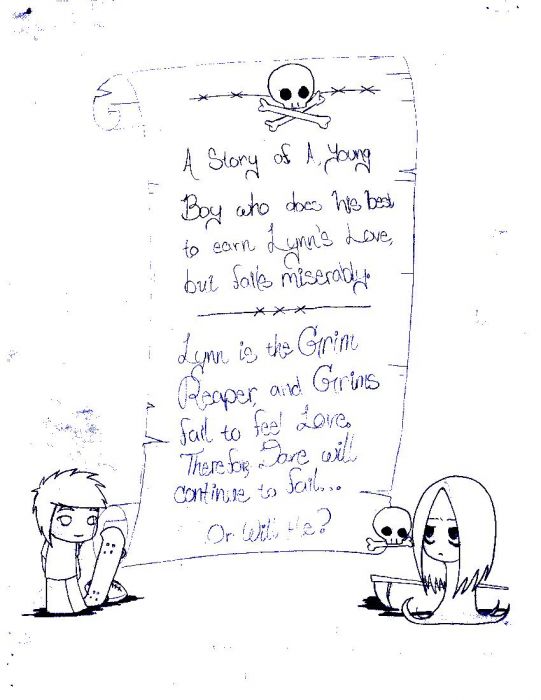 A Story of A Young
Boy who does his best
to earn Lynn's Love,
but fails miserably.
Lynn is the Grim
Reaper, and Grims
fail to feel Love.
Therefor, Dave will
continue to fail...
Or Will He?